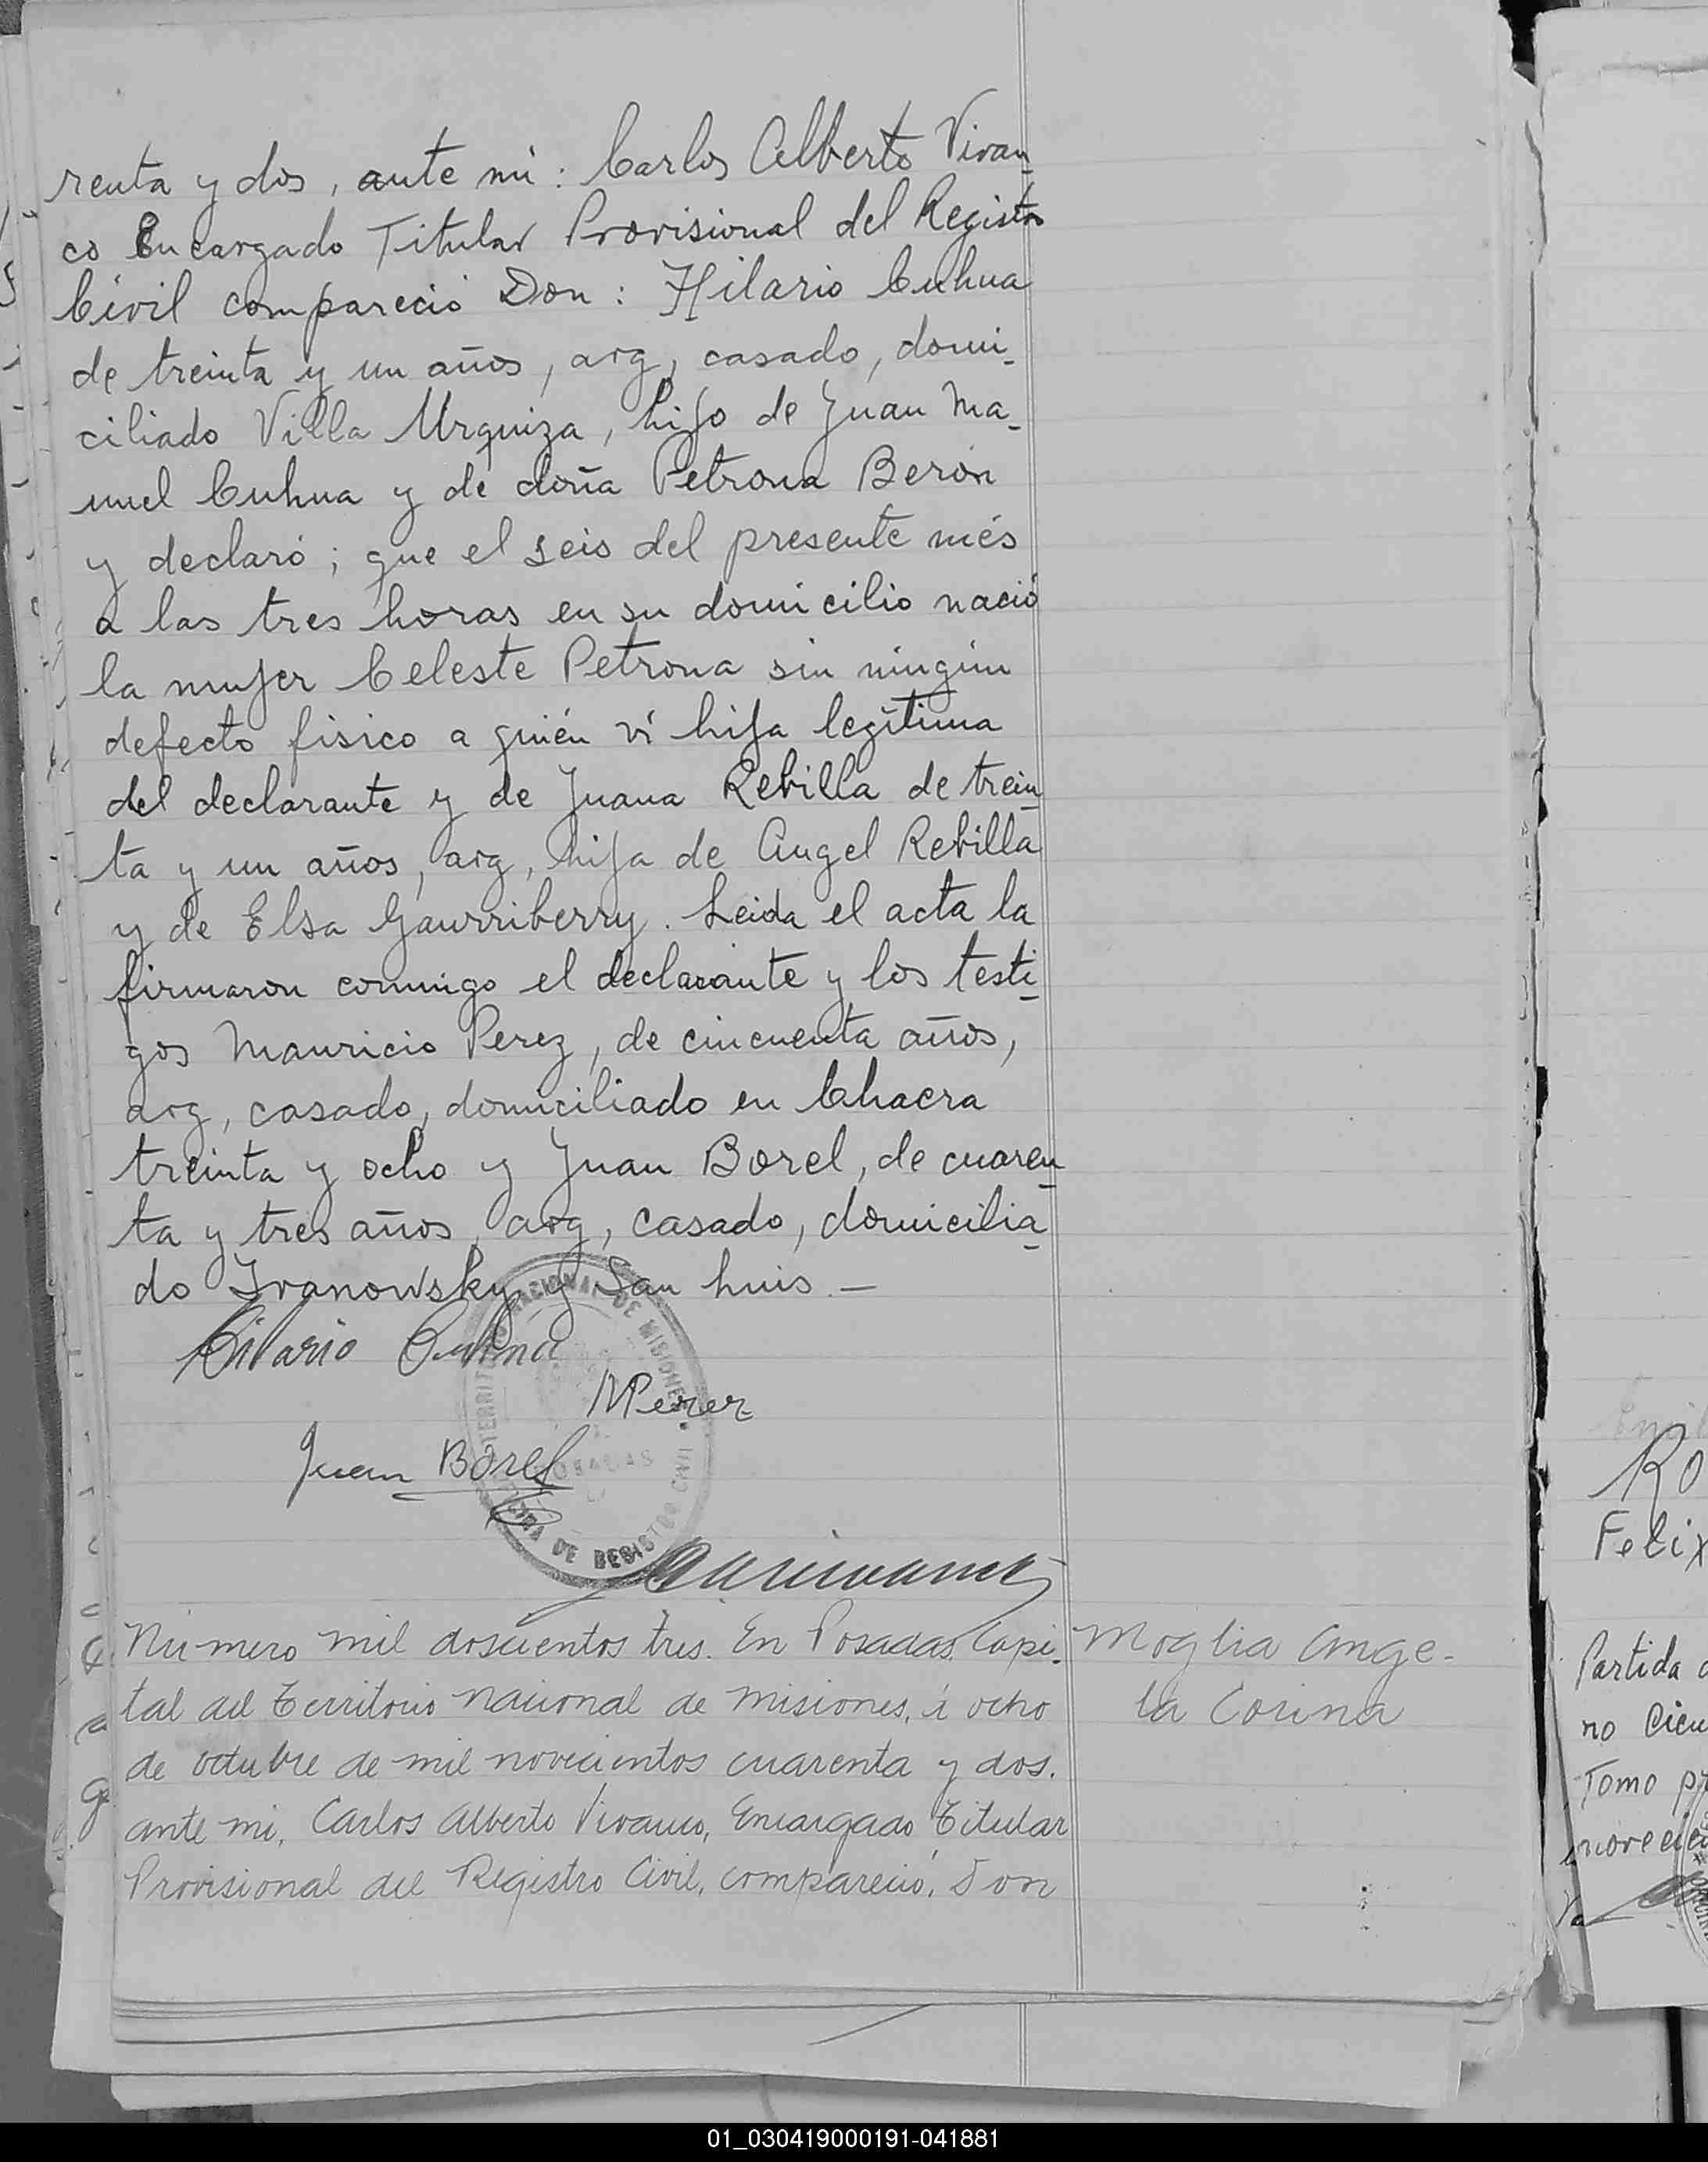 renta y dos, ante mi: Carlos Alberto Vivan-
co Encargado Titular Provisional del Registro
Civil compareció Don: Hilario Cuhua
de treinta y un años, arg, casado, domi-
ciliado Villa Urquiza, hijo de Juan Ma-
nuel Cuhua y de doña Petrona Berón
y declaró; que el seis del presente més
a las tres horas en su domicilio nació
la mujer Celeste Petrona sin ningún
defecto fisico a quién ví hija legítima
del declarante y de Juana Rebilla de trein-
ta y un años, arg, hija de Angel Rebilla
y de Elsa Gaurriberry. Leida el acta la
firmaron conmigo el declarante y los testi-
gos Mauricio Perez, de cincuenta años,
arg, casado, domiciliado en Chacra
treinta y ocho y Juan Borel, de cuaren-
ta y tres años, arg, casado, domicilia-
do Ivanowsky y San Luis.—
Hilario Cuhua
MPerez
Juan Borel
TERRITORIO NACIONAL DE MISIONES
POSADAS
DE REGISTRO CIVIL
Número mil doscientos tres. En Posadas, Capi-
tal del Territorio Nacional de Misiones, á ocho
de octubre de mil novecientos cuarenta y dos.
ante mi, Carlos Alberto Vivanco, Encargado Titular
Provisional del Registro Civil, compareció, Don
Moglia Ange-
la Corina
Ro
Felix
Partida
no
Tomo
01_030419000191-041881